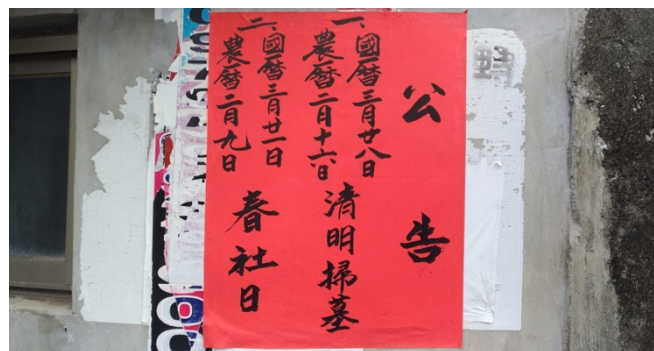 公告
一、國曆三月廿八日
農曆二月十六日
清明掃墓
二、國曆三月廿一日
農曆二月九日
春社日
轉